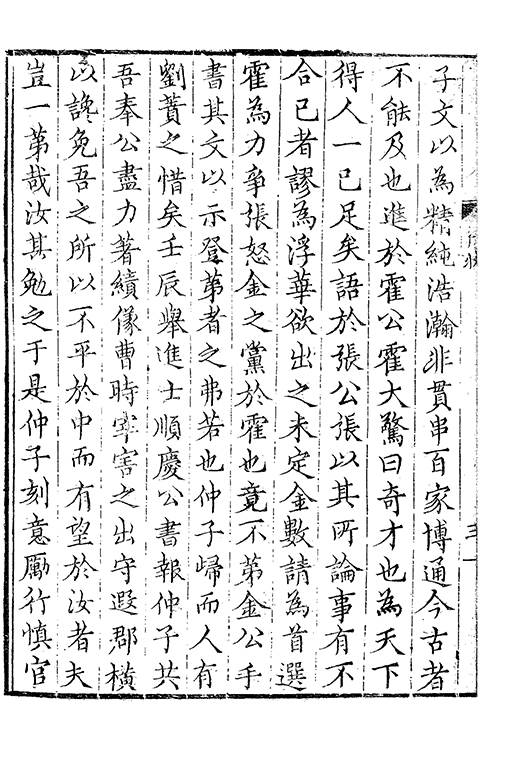 子文以為精純浩瀚非貫串百家博通今古者
不能及也進於霍公霍大驚曰奇才也為天下
得人一已足矣語於張公張以其所論事有不
合已者謬為浮華欲出之未定金數請為首選
霍為力爭張怒金之黨於霍也竟不第金公手
書其文以示登第者之弗若也仲子歸而人有
劉蕡之惜矣壬辰舉進士順慶公書報仲子共
吾奉公盡力著績像曹時宰害之出守遐郡橫
以讒免吾之所以不平於中而有望於汝者夫
豈一第哉汝其勉之于是仲子刻意勵行慎官